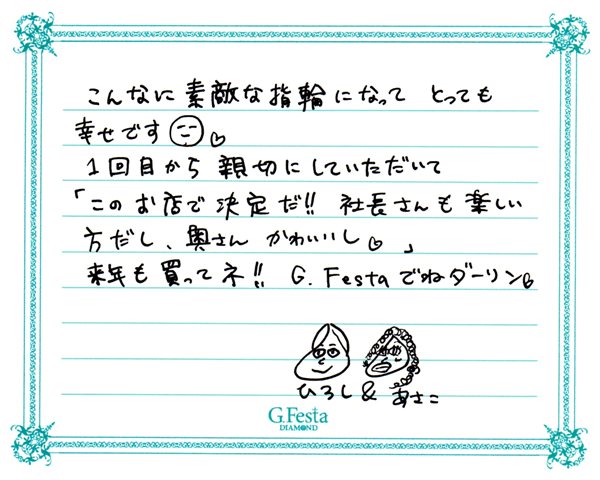 こんなに素敵な指輪になって とっても
幸せです♡
1回目から親切にしていただいて
「このお店で決定だ!! 社長さんも楽しい
方だし、奥さん かわいいし♡」
来年も買ってネ!! G.Festaでねダーリン♡
ひろし & あさこ
G.Festa
DIAMOND